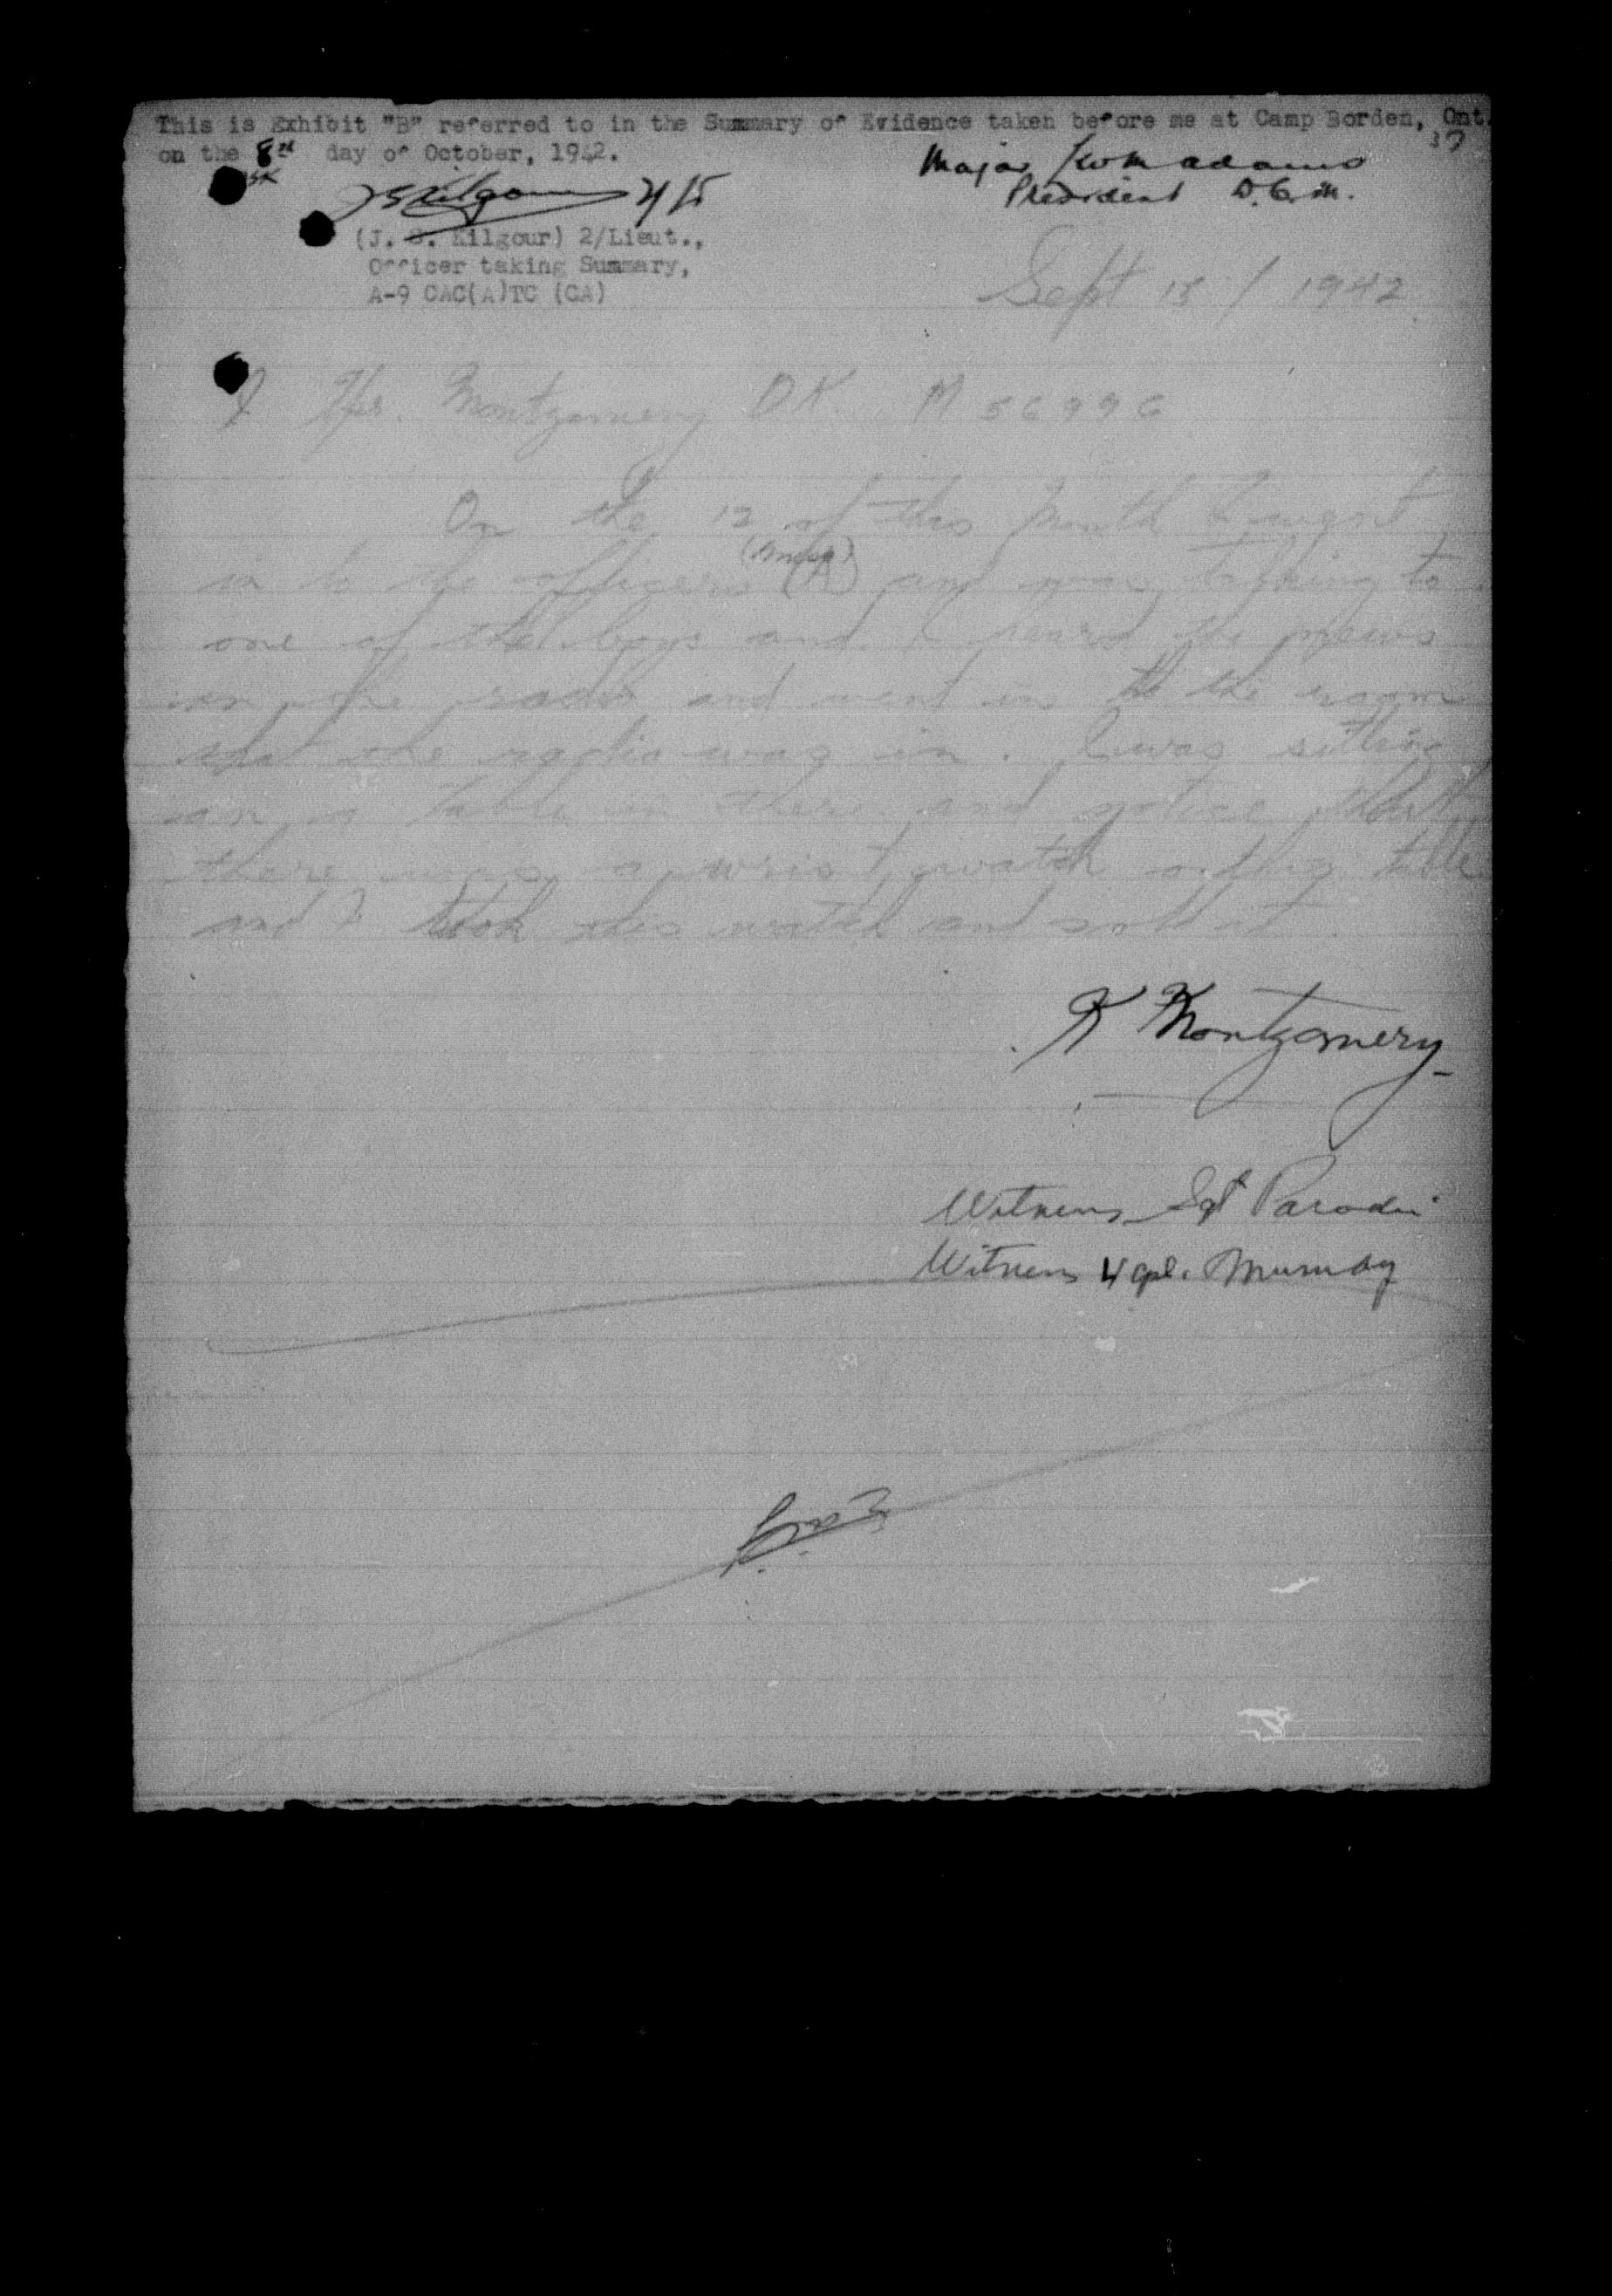 This is Exhibit "B" referred to in the Summary of Evidence taken before me at Camp Borden, Ont.
37
on the 8th day of October, 1942.
Major Adams
President D.C.M.
JSK
JS Kilgour 2/Lt
(J. S. Kilgour) 2/Lieut.,
Officer taking Summary,
A-9 CAC(A)TC (CA)
Sept 15 / 1942
I Tpr. Montgomery D K M 56996
On the 12 of this Month I went
(mess)
in to the officers (A) and was talking to
one of the boys and I heard the news
on the radio and went in to the room
that the radio was in. I was sitting
on a table in there and notice that
there was a wrist watch on this table
and I took this watch and sold it.
K Montgomery
Witness Sgt Parodi
Witness L/Cpl. Mumby